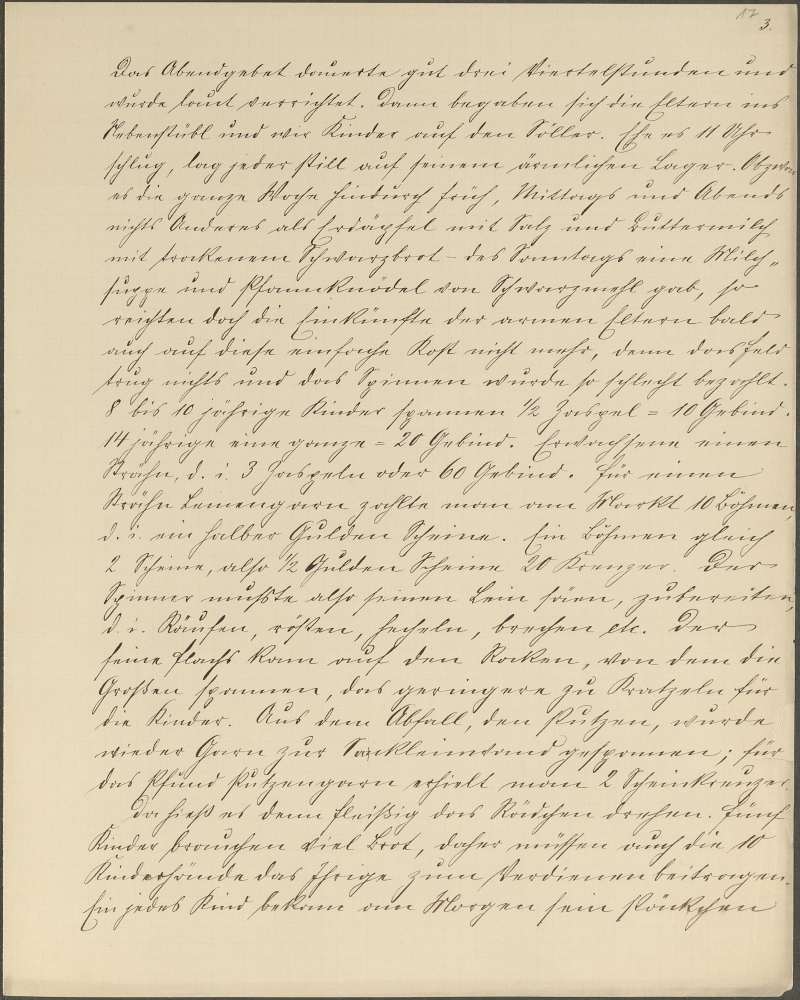 17
3.
Das Abendgebet dauerte gut drei Viertelstunden und
wurde laut verrichtet. Dann begaben sich die Eltern ins
Nebenstübl und wir Kinder auf den Söller. Ehe es 11 Uhr
schlug, lag jeder still auf seinem ärmlichen Lager. Obzwar
es die ganze Woche hindurch früh, Mittags und Abends
nichts Anderes als Erdäpfel mit Salz und Buttermilch
mit trockenem Schwarzbrot – des Sonntags eine Milch-
suppe und Pfannknödel von Schwarzmehl gab, so
reichten doch die Einkünfte der armen Eltern bald
auch auf diese einfache Kost nicht mehr, denn das Feld
trug nichts und das Spinnen wurde so schlecht bezahlt.
8 bis 10 jährige Kinder spannen 1/2 Haspel = 10 Gebind.
14 jährige eine ganze = 20 Gebind. Erwachsene einen
Strähn, d. i. 3 Haspeln oder 60 Gebind. Für einen
Strähn Leinengarn zahlte man am Markt 10 Böhmen,
d. i. ein halber Gulden Scheine. Ein Böhmen gleich
2 Scheine, also 1/2 Gulden Scheine 20 Kreuzer. Der
Spinner mußte also seinen Lein säen, zubereiten,
d. i. Räufen, rösten, hecheln, brechen etc. Der
feine Flachs kam auf den Rocken, von dem die
Großen spannen, das geringere zu Kratzeln für
die Kinder. Aus dem Abfall, den Putzen, wurde
wieder Garn zur Sackleinwand gesponnen; für
das Pfund Putzengarn erhielt man 2 Scheinkreuzer.
Da hieß es denn fleißig das Rädchen drehen. Fünf
Kinder brauchen viel Brot, daher müssen auch die 10
Kinderhände das Ihrige zum Verdienen beitragen.
Ein jedes Kind bekam am Morgen sein Päckchen